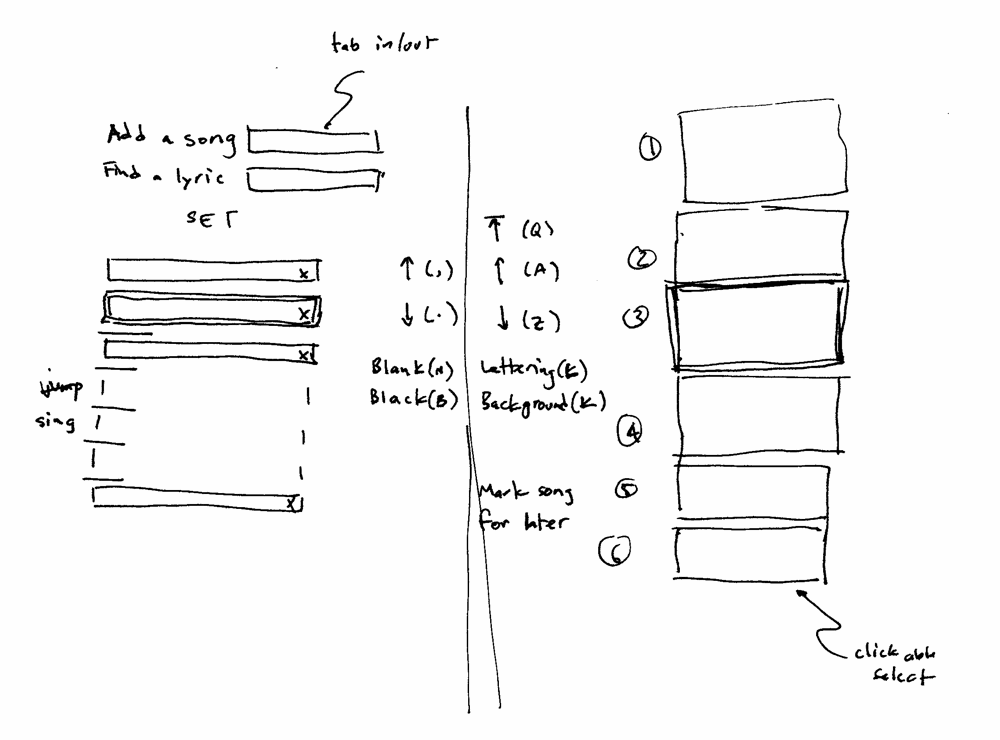 tab in/out
Add a song
Find a lyric
SET
x
x
x
jump
sing
x
↑ (,)
↓ (.)
Blank(N)
Black(B)
↑ (Q)
↑ (A)
↓ (Z)
Lettering(K)
Background(K)
Mark song
for later
1
2
3
4
5
6
click able
select